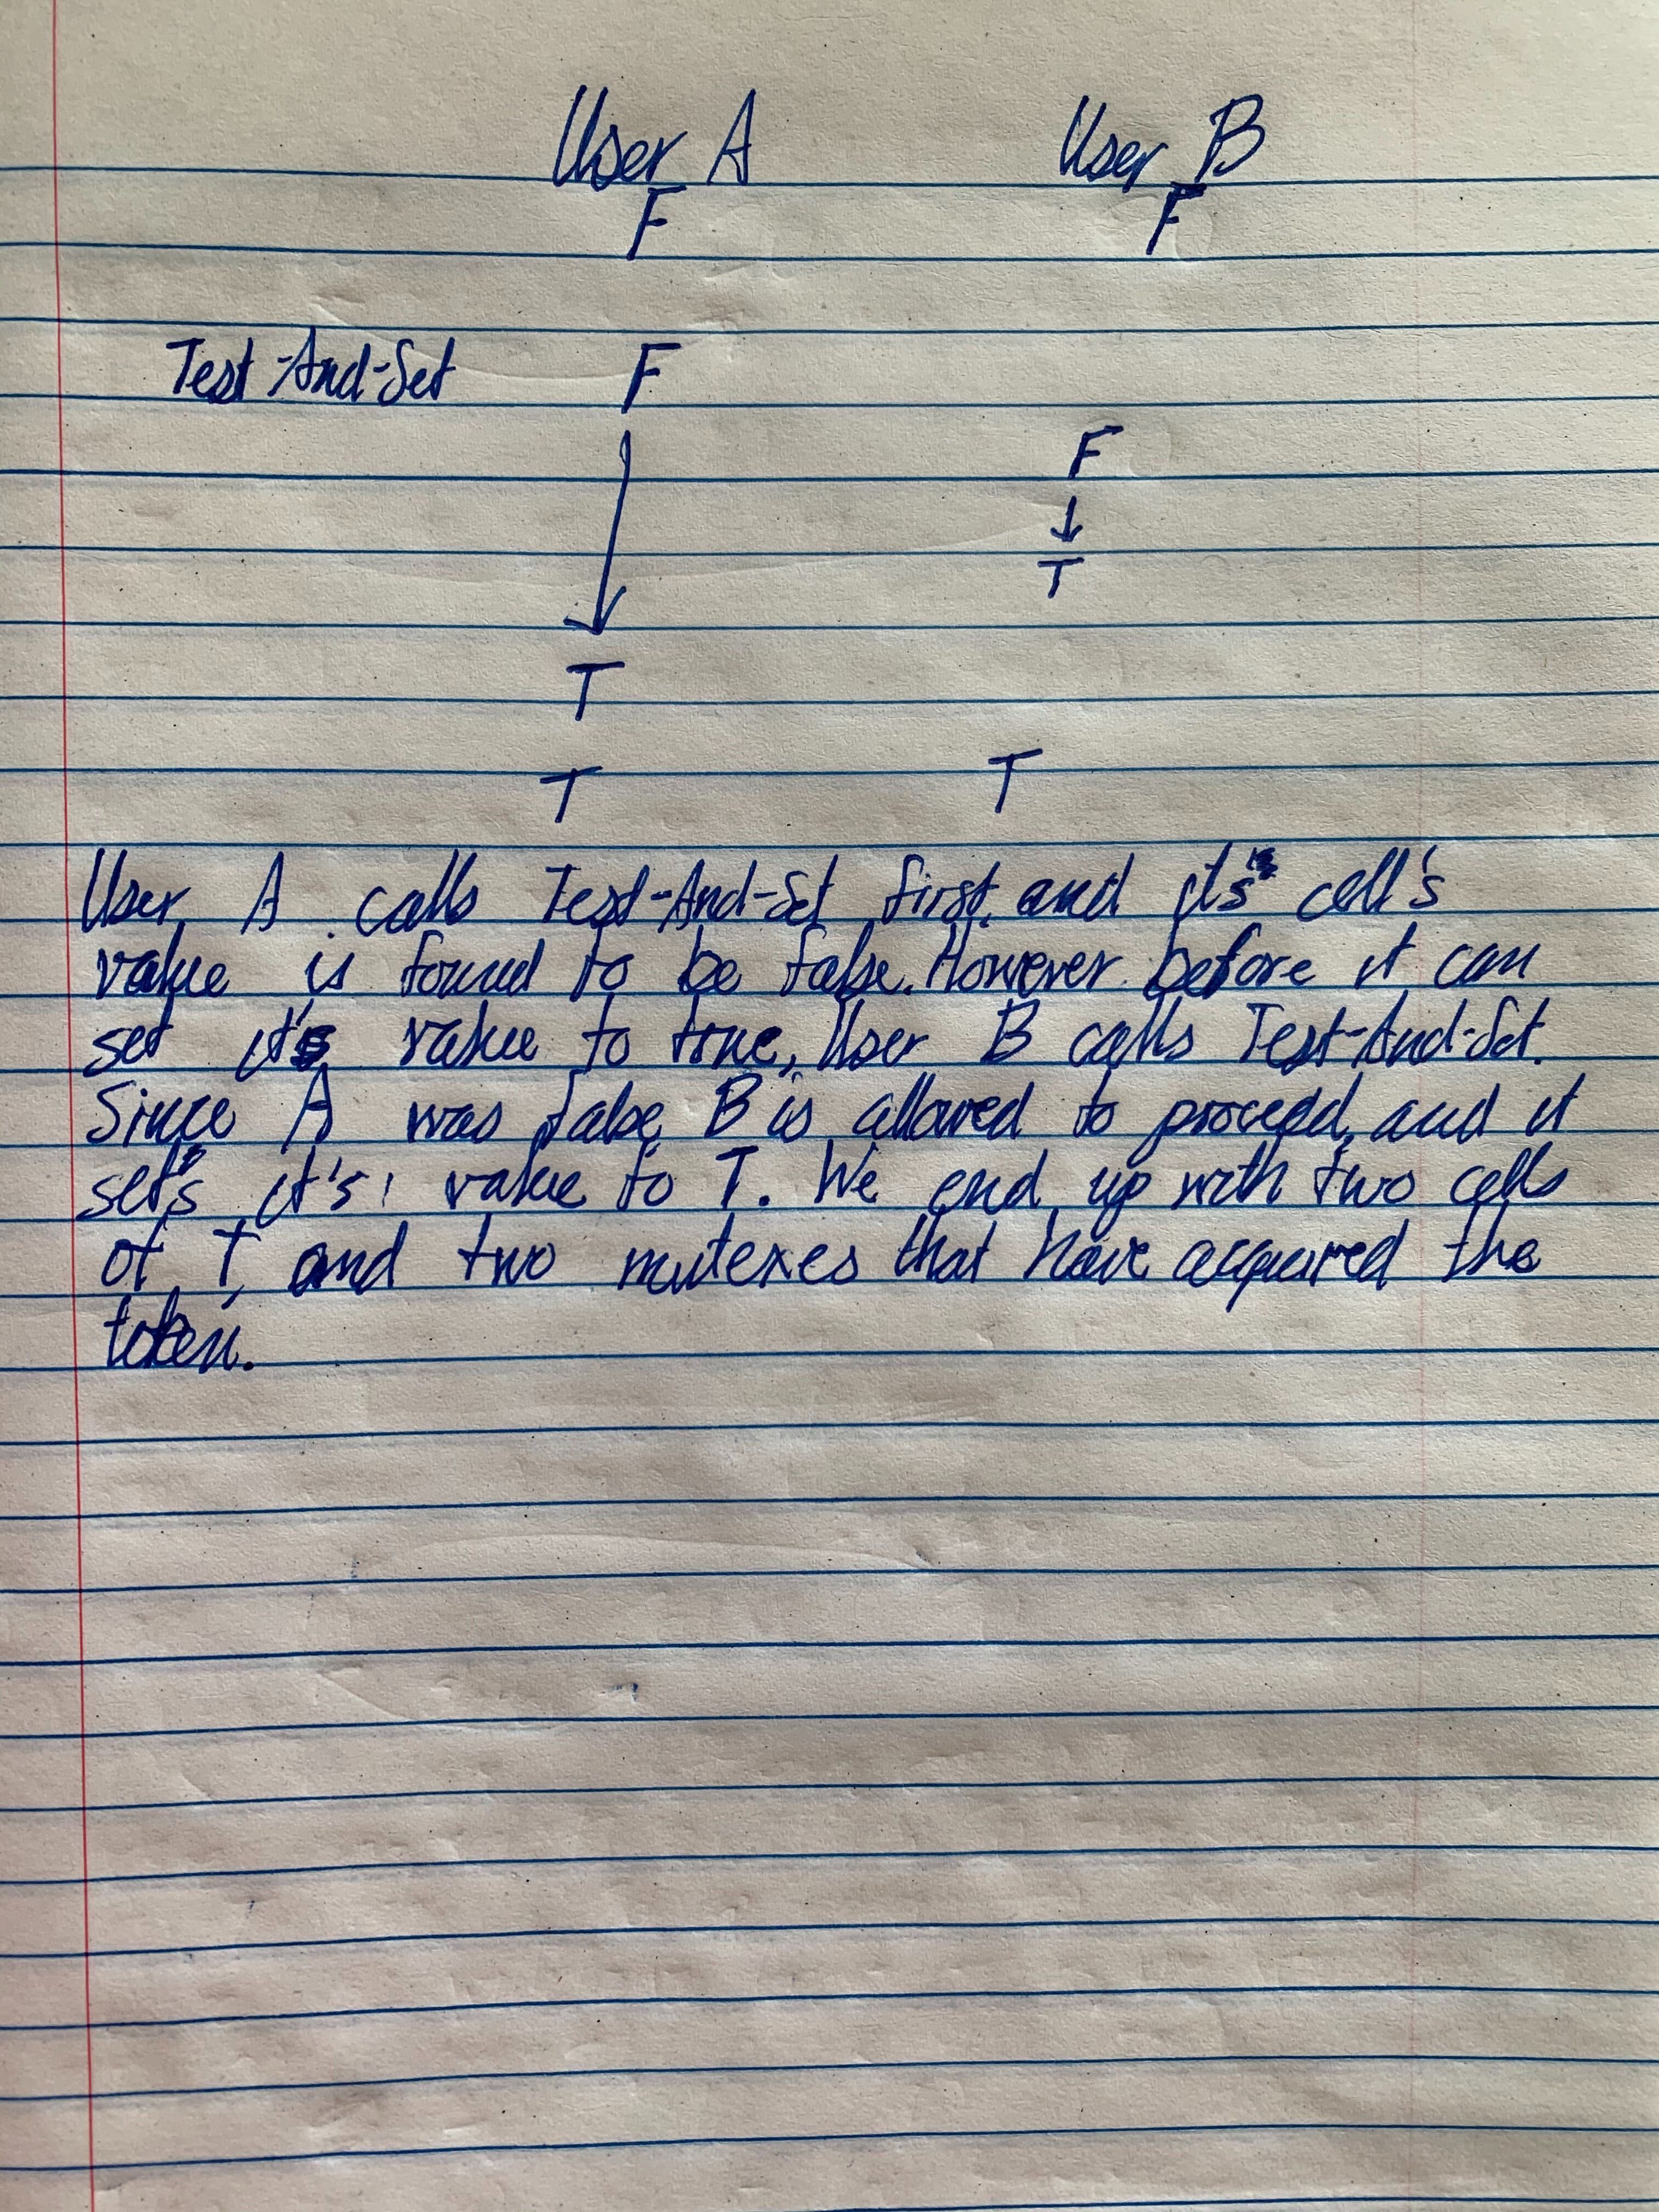 User A User B
F F
Test-And-Set F
F
↓
T
T
T T
User A calls Test-And-Set first, and it's cell's
value is found to be false. However before it can
set it's value to true, User B calls Test-And-Set.
Since A was false, B is allowed to proceed, and it
sets it's value to T. We end up with two cells
of T, and two mutexes that have acquired the
token.